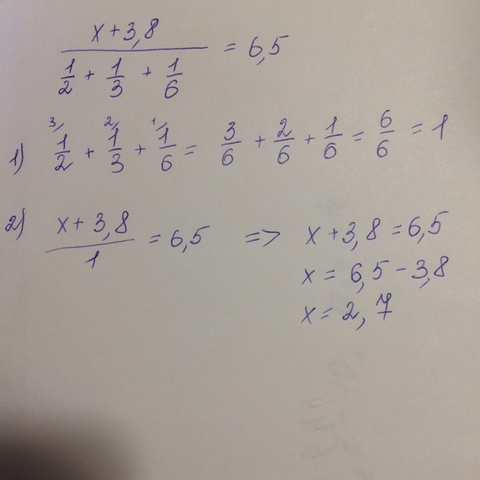 x+3,8 / (1/2 + 1/3 + 1/6) = 6,5
1) 3/ 1/2 + 2/ 1/3 + 1/ 1/6 = 3/6 + 2/6 + 1/6 = 6/6 = 1
2) x+3,8 / 1 = 6,5 => x+3,8=6,5
x = 6,5-3,8
x = 2,7